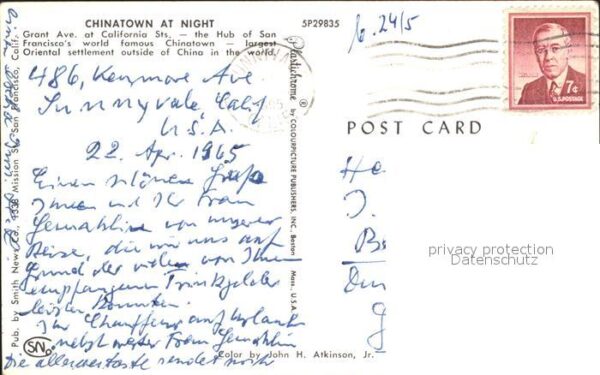 CHINATOWN AT NIGHT
5P29835
Grant Ave. at California Sts. — the Hub of San
Francisco's world famous Chinatown — largest
Oriental settlement outside of China in the world.
486, Kenmore Ave.
Sunnyvale Calif
U.S.A.
22. Apr. 1965
Einen schönen Gruß
Ihnen und Ihr Frau
Gemahlin von unserer
Reise, die wir uns auf
Grund der vielen von Ihnen
empfangenen Trinkgelder
leisten konnten.
Ihr Chauffeur auf Urlaub
nebst Frau Gemahlin
Die allerwerteste sendet noch
Pub. by Smith News Co., Mission St., San Francisco, Calif.
SN Co.
Plastichrome ® by COLOURPICTURE PUBLISHERS, INC. Boston Mass., U.S.A.
Color by John H. Atkinson, Jr.
6.24/5
7¢
U.S. POSTAGE
POST CARD
He
J.
B
D
G
privacy protection
Datenschutz